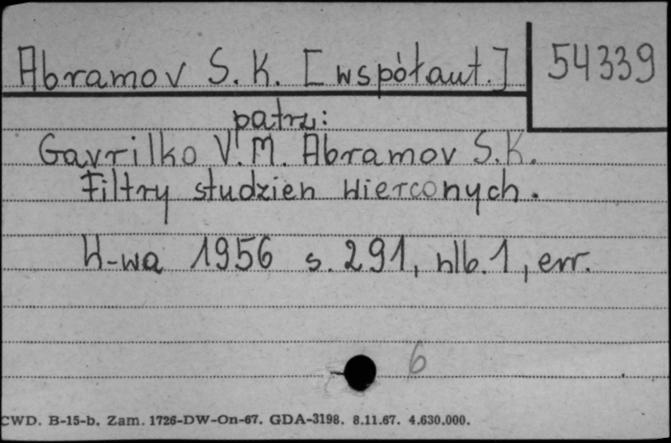 Abramov S. K. [współaut.] 54339
patrz:
Gavrilko V. M. Abramov S. K.
Filtry studzien wierconych.
W-wa 1956 s. 291, nlb. 1, err.
6
CWD. B-15-b. Zam. 1726-DW-On-67. GDA-3198. 8.11.67. 4.630.000.